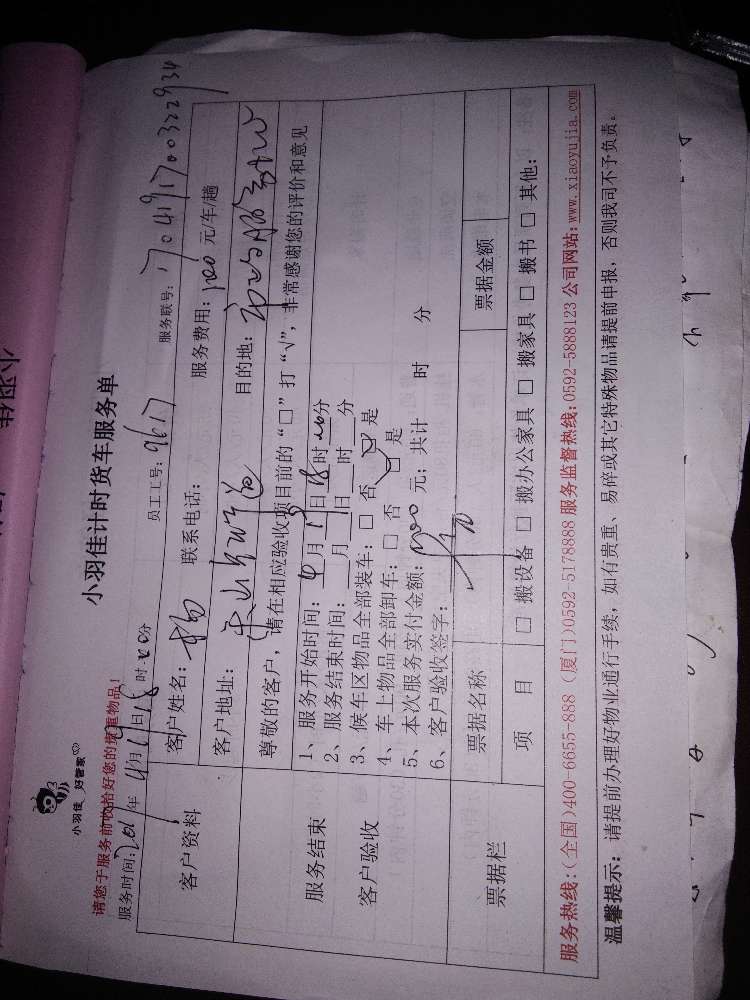 小羽佳 好管家
小羽佳计时货车服务单
请您于服务前收拾好您的贵重物品！
服务时间： 年 4月 日18时20分 员工工号：9617 服务联号：170419170032293
客户资料
客户姓名：杨 联系电话： 服务费用： 元/车/趟
客户地址： 目的地：
服务结束
客户验收
尊敬的客户，请在相应验收项目前的“□”打“√”，非常感谢您的评价和意见
1、服务开始时间： 月 日18时20分
2、服务结束时间： 月 日 时 分
3、候车区物品全部装车：□ 否 □ 是
4、车上物品全部卸车：□ 否 □ 是
5、本次服务实付金额： 元；共计 时 分
6、客户验收签字：
票据栏
票据名称 票据金额
项 目 □ 搬设备 □ 搬办公家具 □ 搬家具 □ 搬书 □ 其他：
服务热线：(全国)400-6655-888 (厦门)0592-5178888 服务监督热线：0592-5888123 公司网站：www.xiaoyujia.com
温馨提示：请提前办理好物业通行手续，如有贵重、易碎或其它特殊物品请提前申报，否则我司不予负责。